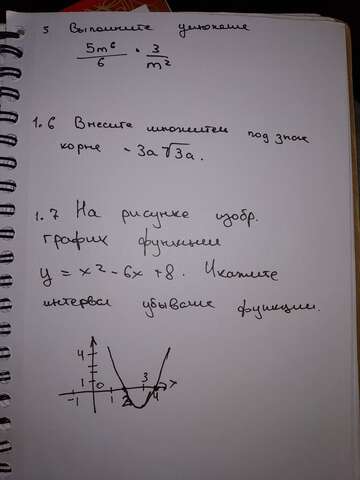 5 Выполните умножение
5m⁶/6 · 3/m²
1.6 Внесите множитель под знак
корня -3a√3a.
1.7 На рисунке изобр.
график функции
y = x² - 6x + 8. Укажите
интервал убывания функции.
4
1 0 3 x
-1 1 2 4
-1